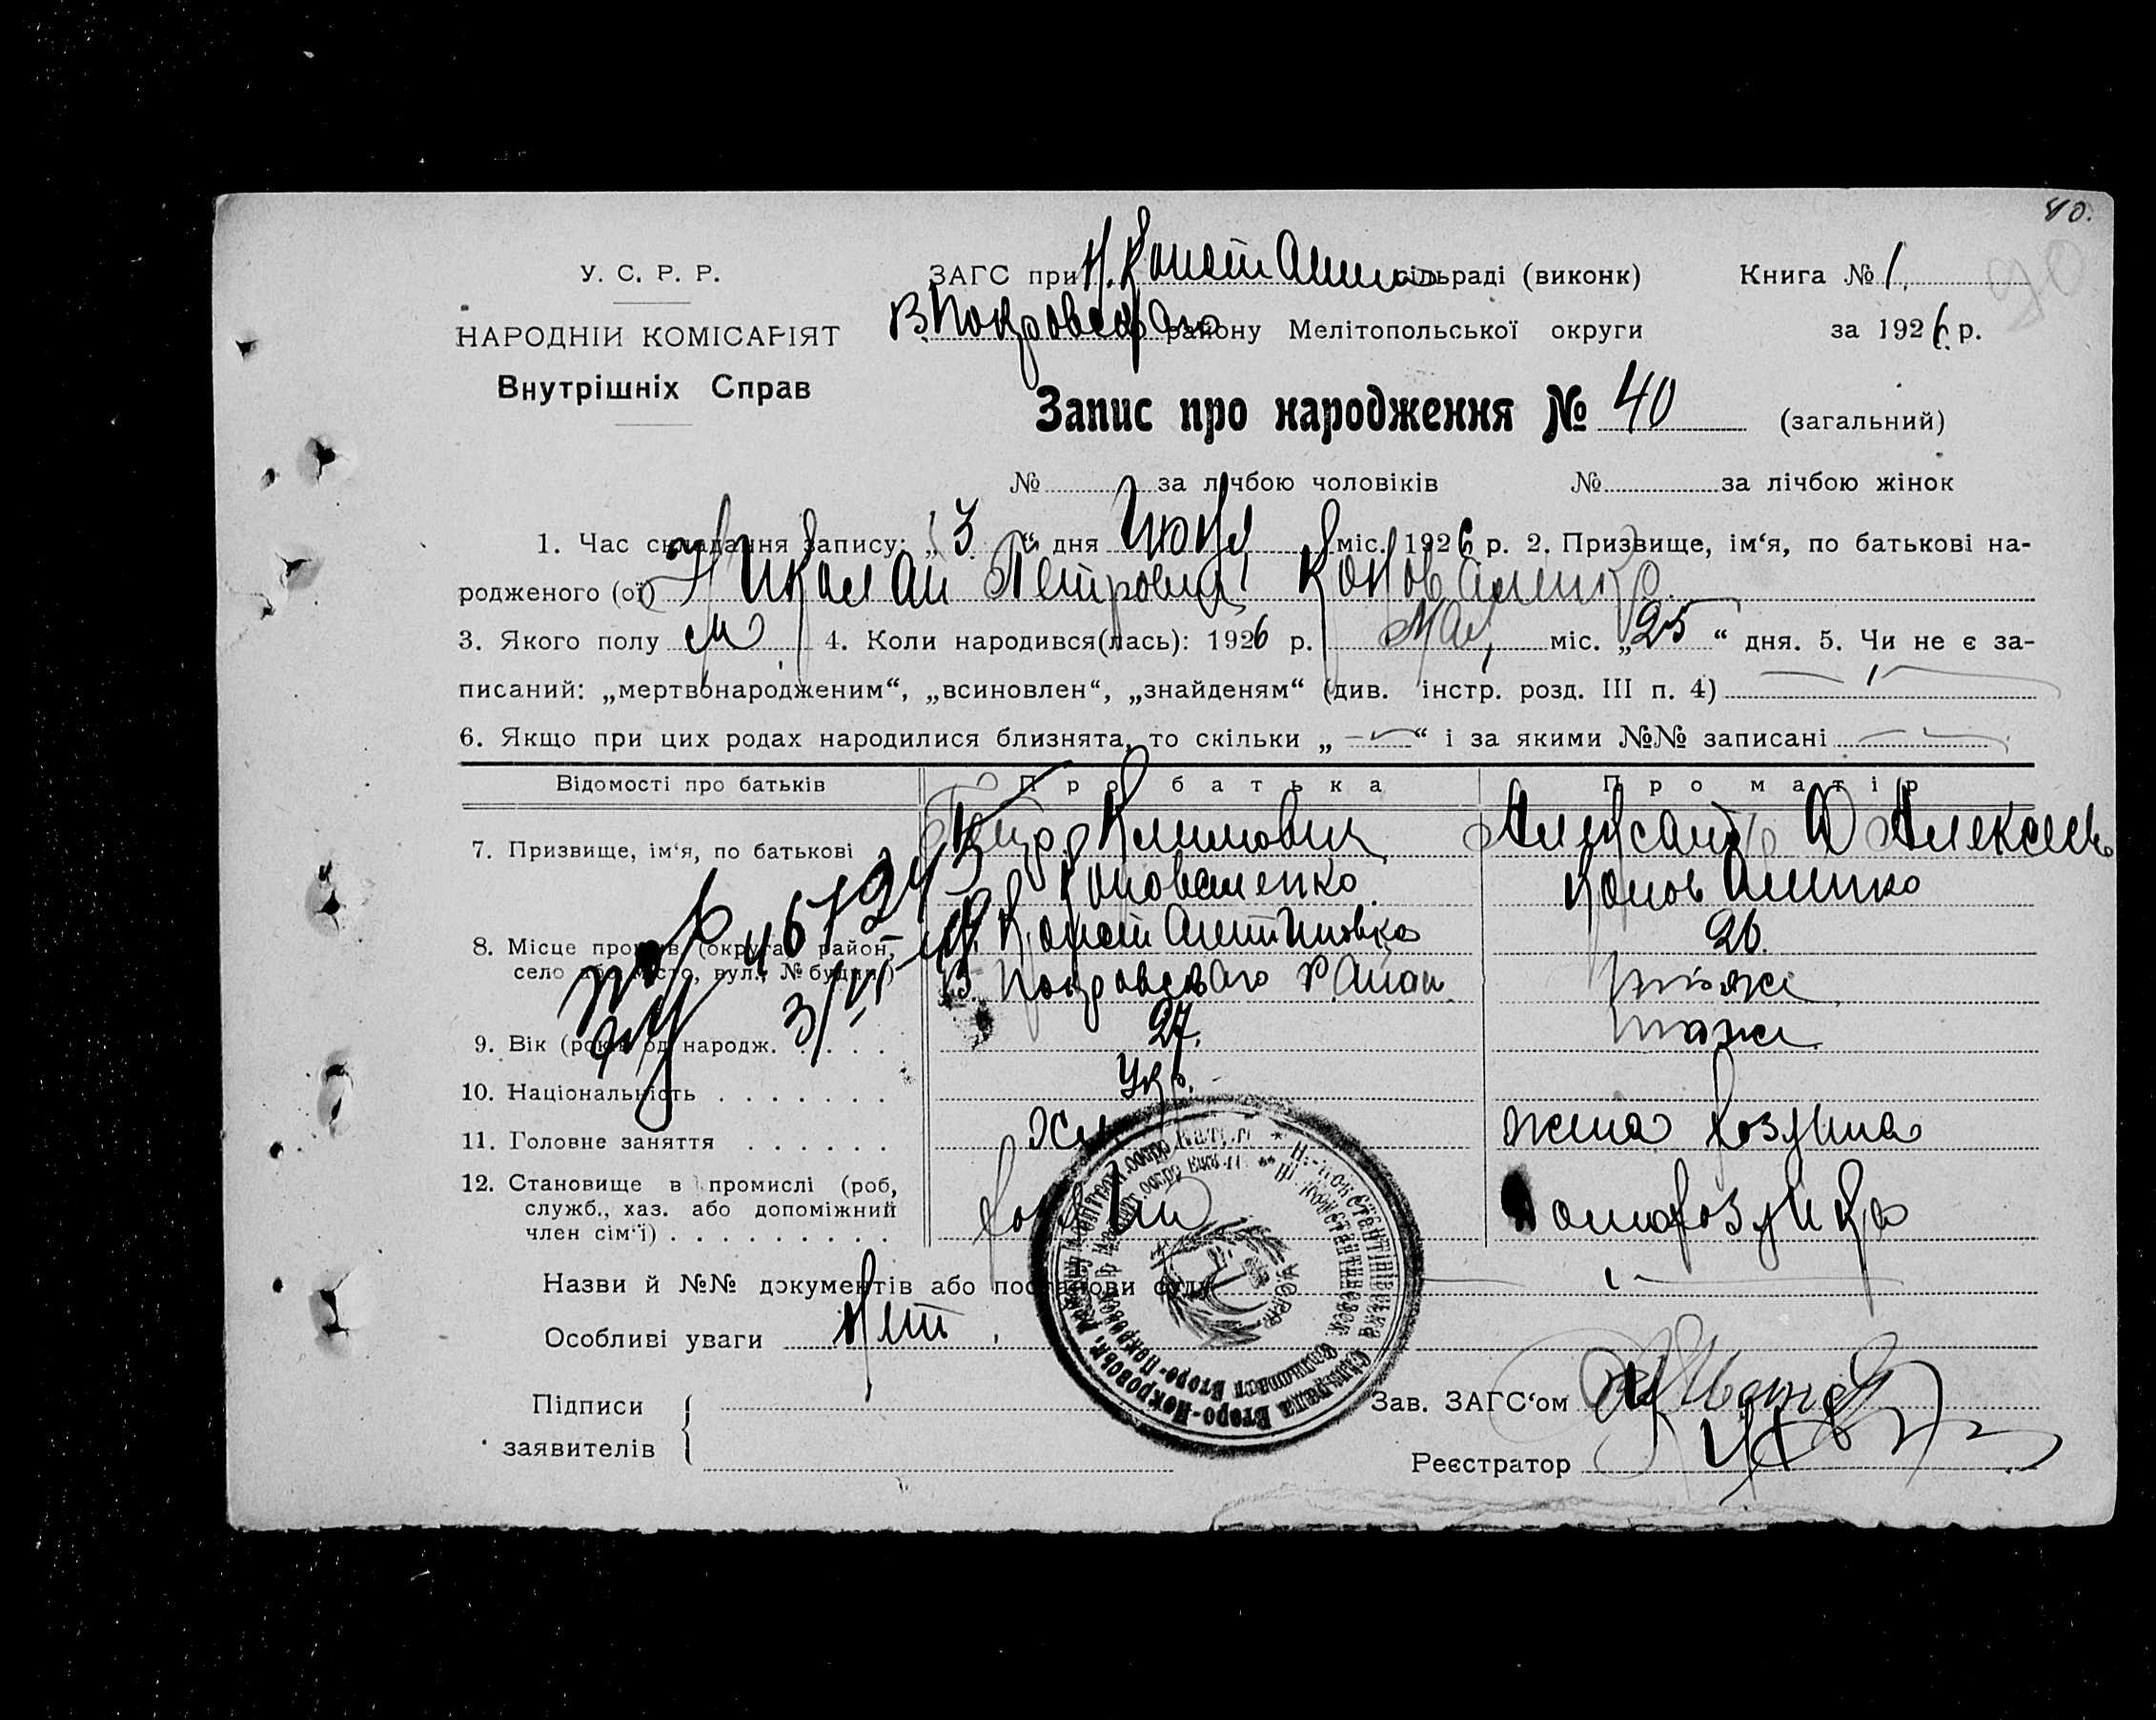 40.
90
У. С. Р. Р.
НАРОДНІЙ КОМІСАРІЯТ
Внутрішніх Справ
ЗАГС при Н. Констан сільраді (виконк) Книга № 1.
В Покровскаго району Мелітопольської округи за 1926 р.
Запис про народження № 40 (загальний)
№ за лічбою чоловіків № за лічбою жінок
1. Час складання запису: „3“ дня міс. 1926 р. 2. Призвище, ім‘я, по батькові на-
родженого (ої) Николай Петрович Коноваленко.
3. Якого полу м 4. Коли народився(лась): 1926 р. Мая міс. „25“ дня. 5. Чи не є за-
писаний: „мертвонародженим“, „всиновлен“, „знайденям“ (див. інстр. розд. III п. 4)
6. Якщо при цих родах народилися близнята, то скільки „ “ і за якими №№ записані
Відомості про батьків Про батька Про матір
7. Призвище, ім‘я, по батькові Петр Климович Александ Алексеев
Коноваленко Коноваленко
8. Місце прожив. (округа, район, Н Константиновка 26.
село або місто, вул., № будин.) В. Покровскаго Район. тоже
9. Вік (років од народж. 27. тоже
10. Національність Укр.
11. Головне заняття жена хозяина
12. Становище в промислі (роб, Домохозяйка
служб., хаз. або допоміжний
член сім‘ї)
3/VI
Назви й №№ документів або постанови суду
Особливі уваги Нет.
Підписи
заявителів
Зав. ЗАГС‘ом
Реєстратор